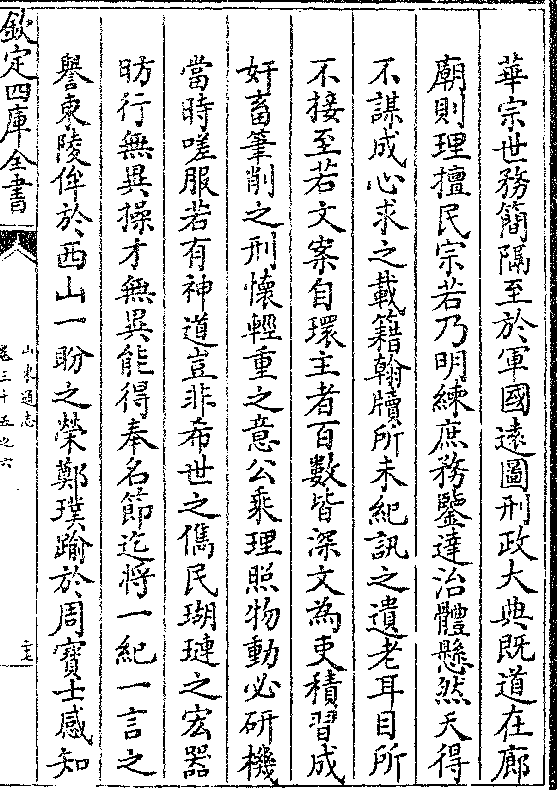 華宗世務簡隔至於軍國遠圖刑政大典既道在廊
廟則理擅民宗若乃明練庶務鑒達治體懸然天得
不謀成心求之載籍翰牘所未紀訊之遺老耳目所
不接至若文案自環主者百數皆深文為吏積習成
奸畜筆削之刑懷輕重之意公乘理照物動必研機
當時嗟服若有神道豈非希世之儁民瑚璉之宏器
昉行無異操才無異能得奉名節迄將一紀一言之
譽東陵侔於西山一盼之榮鄭璞踰於周寶士感知
欽定四庫全書
山東通志
卷三十五之六